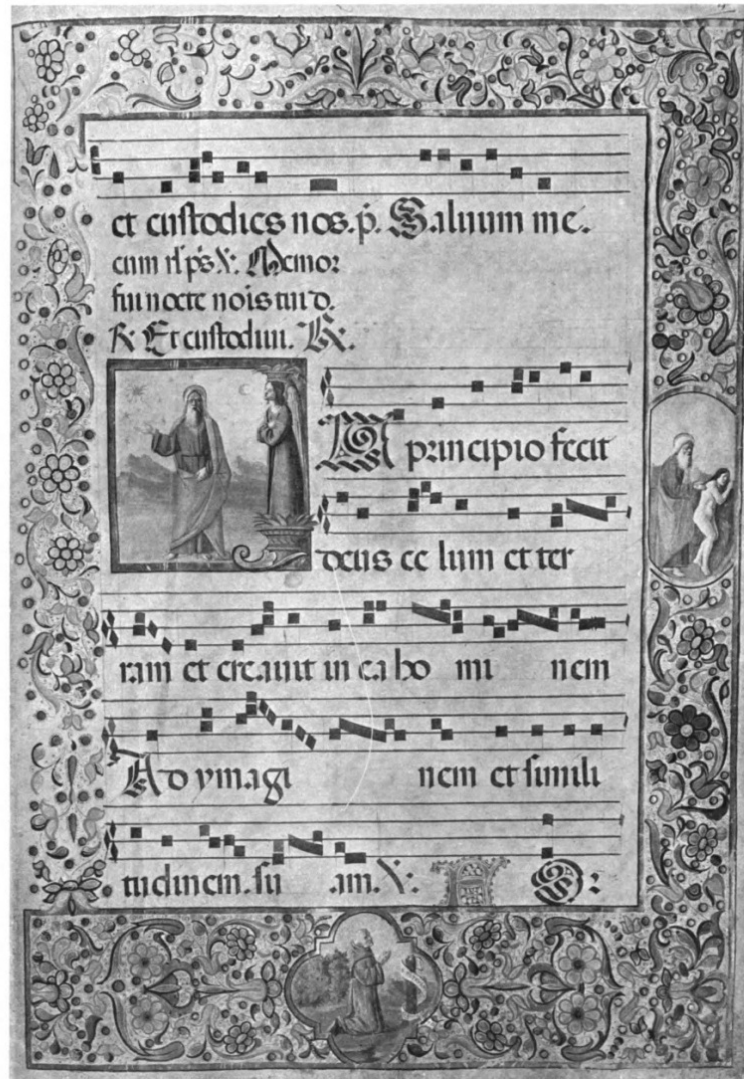 et custodies nos. p̄. Saluum me.
cum rl' ps. V: Memor
fui nocte nois tui d.
R Et custodiui. R:
In principio fecit
deus ce lum et ter
ram et creauit in ea ho mi nem
Ad ymagi nem et simili
tudinem. su am. V: